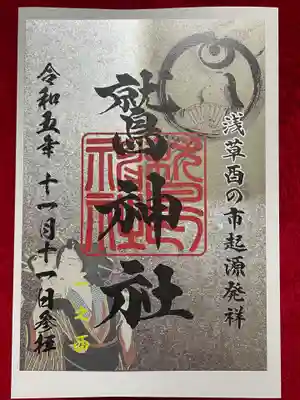 浅草酉の市起源発祥
鷲神社
一之酉
令和五年 十一月十一日参拝